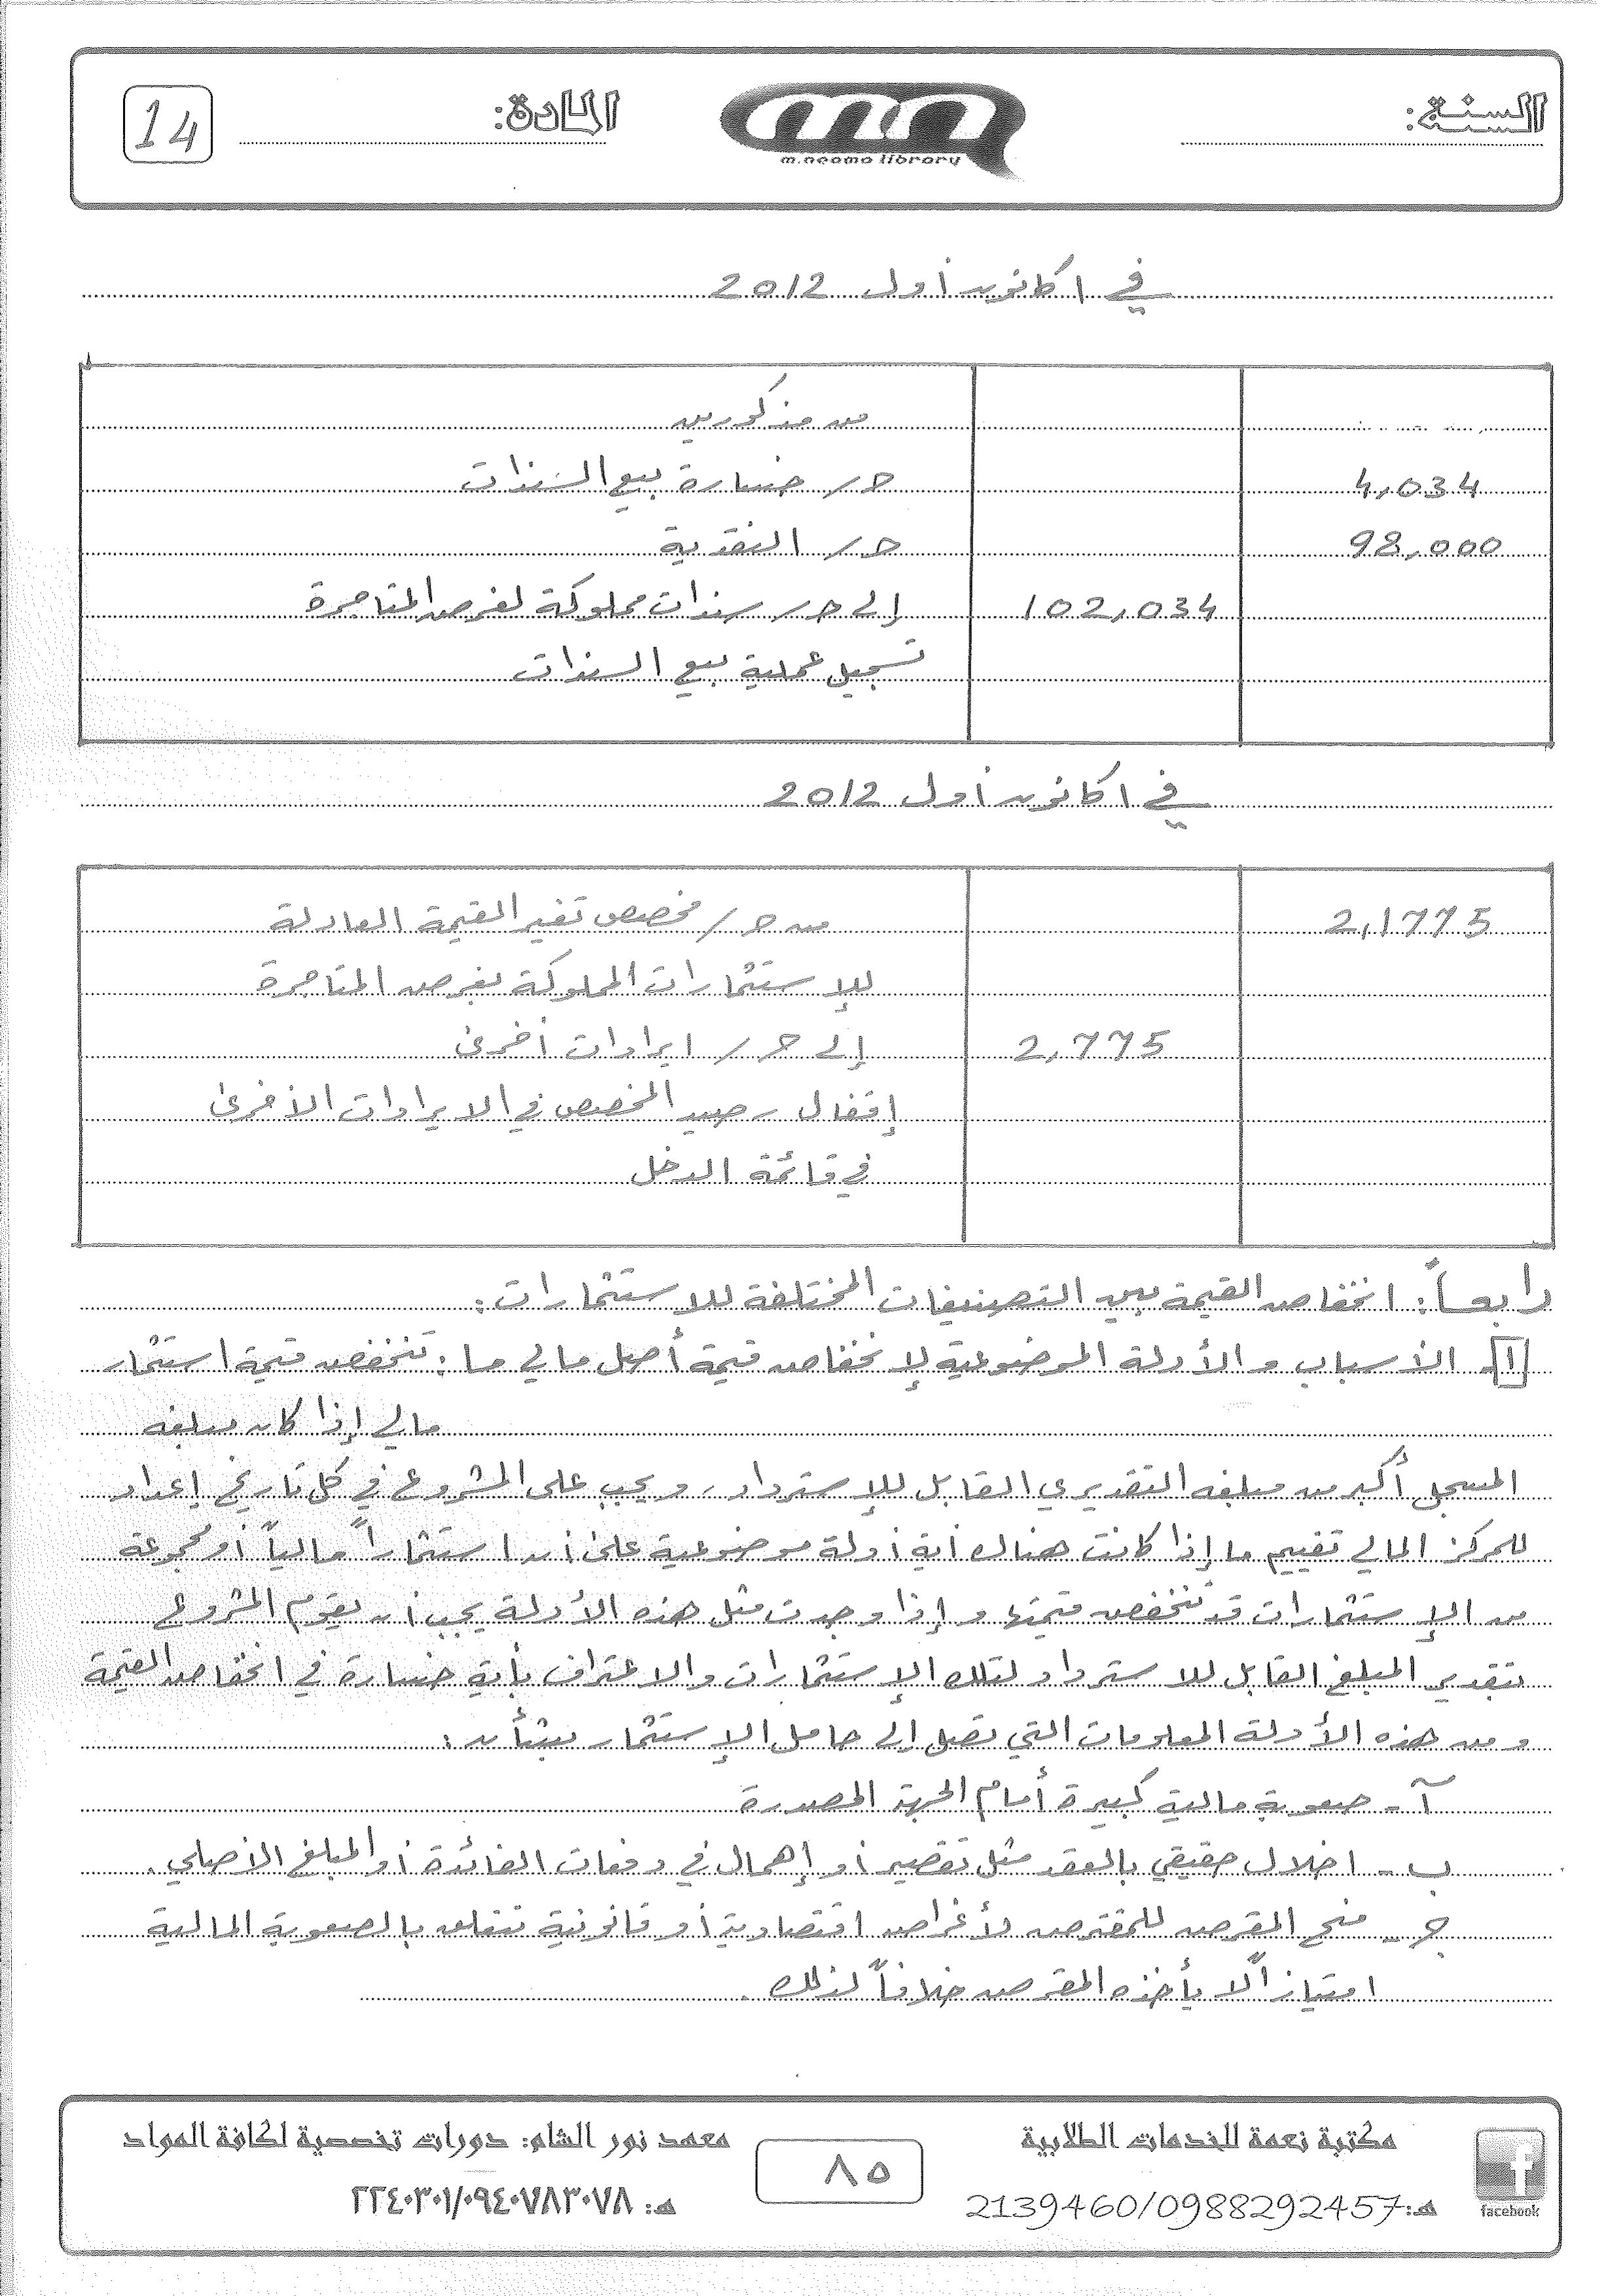 السنة:
m.neama library
المادة:
14
في ١ كانون أول 2012
من مذكورين
4,034 ح/ خسارة بيع السندات
98,000 ح/ النقدية
102,034 إلى ح/ سندات مملوكة لغرض المتاجرة
تسجيل عملية بيع السندات
في ١ كانون أول 2012
2,1775 من ح/ مخصص تغير القيمة العادلة
للإستثمارات المملوكة بغرض المتاجرة
2,775 إلى ح/ ايرادات أخرى
إقفال رصيد المخصص في الايرادات الأخرى
في قائمة الدخل
رابعاً: انخفاض القيمة بين التصنيفات المختلفة للاستثمارات:
١- الأسباب والأدلة الموضوعية لإنخفاض قيمة أصل مالي ما: تنخفض قيمة استثمار
مالي إذا كان مبلغه
المسجل أكبر من مبلغه التقديري القابل للإسترداد، ويجب على المشروع في كل تاريخ إعداد
للمركز المالي تقييم ما إذا كانت هناك أية أدلة موضوعية على أن استثماراً مالياً أو مجموعة
من الإستثمارات قد تنخفض قيمتها وإذا وجدت مثل هذه الأدلة يجب أن يقوم المشروع
بتقدير المبلغ القابل للاسترداد لتلك الإستثمارات والاعتراف بأية خسارة في انخفاض القيمة
ومن هذه الأدلة المعلومات التي تصل إلى حامل الإستثمار بشأن:
آ- صعوبة مالية كبيرة أمام الجهة المصدرة
ب- اخلال حقيقي بالعقد مثل تقصير أو إهمال في دفعات الفائدة أو المبلغ الأصلي.
ج- منح المقرض للمقترض لأغراض اقتصادية أو قانونية تتعلق بالصعوبة المالية
امتيازاً لا يأخذه المقرض خلافاً لذلك.
facebook
مكتبة نعمة للخدمات الطلابية
هـ:2139460/0988292457
٨٥
معهد نور الشام: دورات تخصصية لكافة المواد
هـ: ٢٢٤٠٣٠١/٠٩٤٠٧٨٣٠٧٨